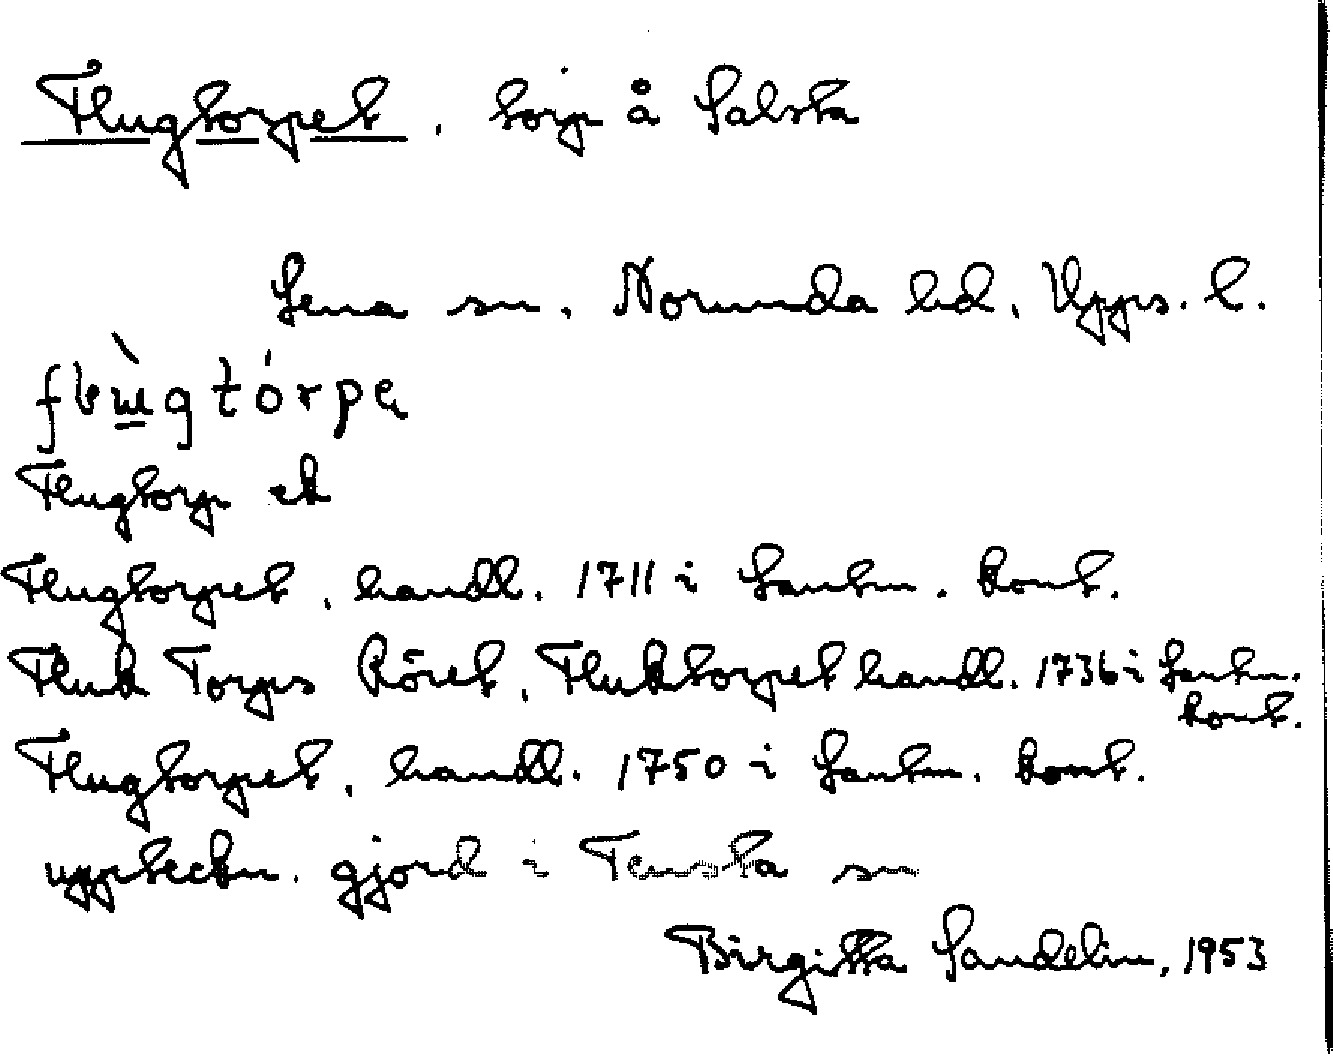 Flugtorpet, torp å Salsta
Lena sn, Norunda hd, Upps. l.
Flugtorp ek
Flugtorpet, handl. 1711 i Lantm. kont.
Fluk Torps Röret, Fluktorpet handl. 1736 i Lantm. kont.
Flugtorpet, handl. 1750 i Lantm. kont.
uppteckn. gjord i Tensta sn
Birgitta Sandelin, 1953